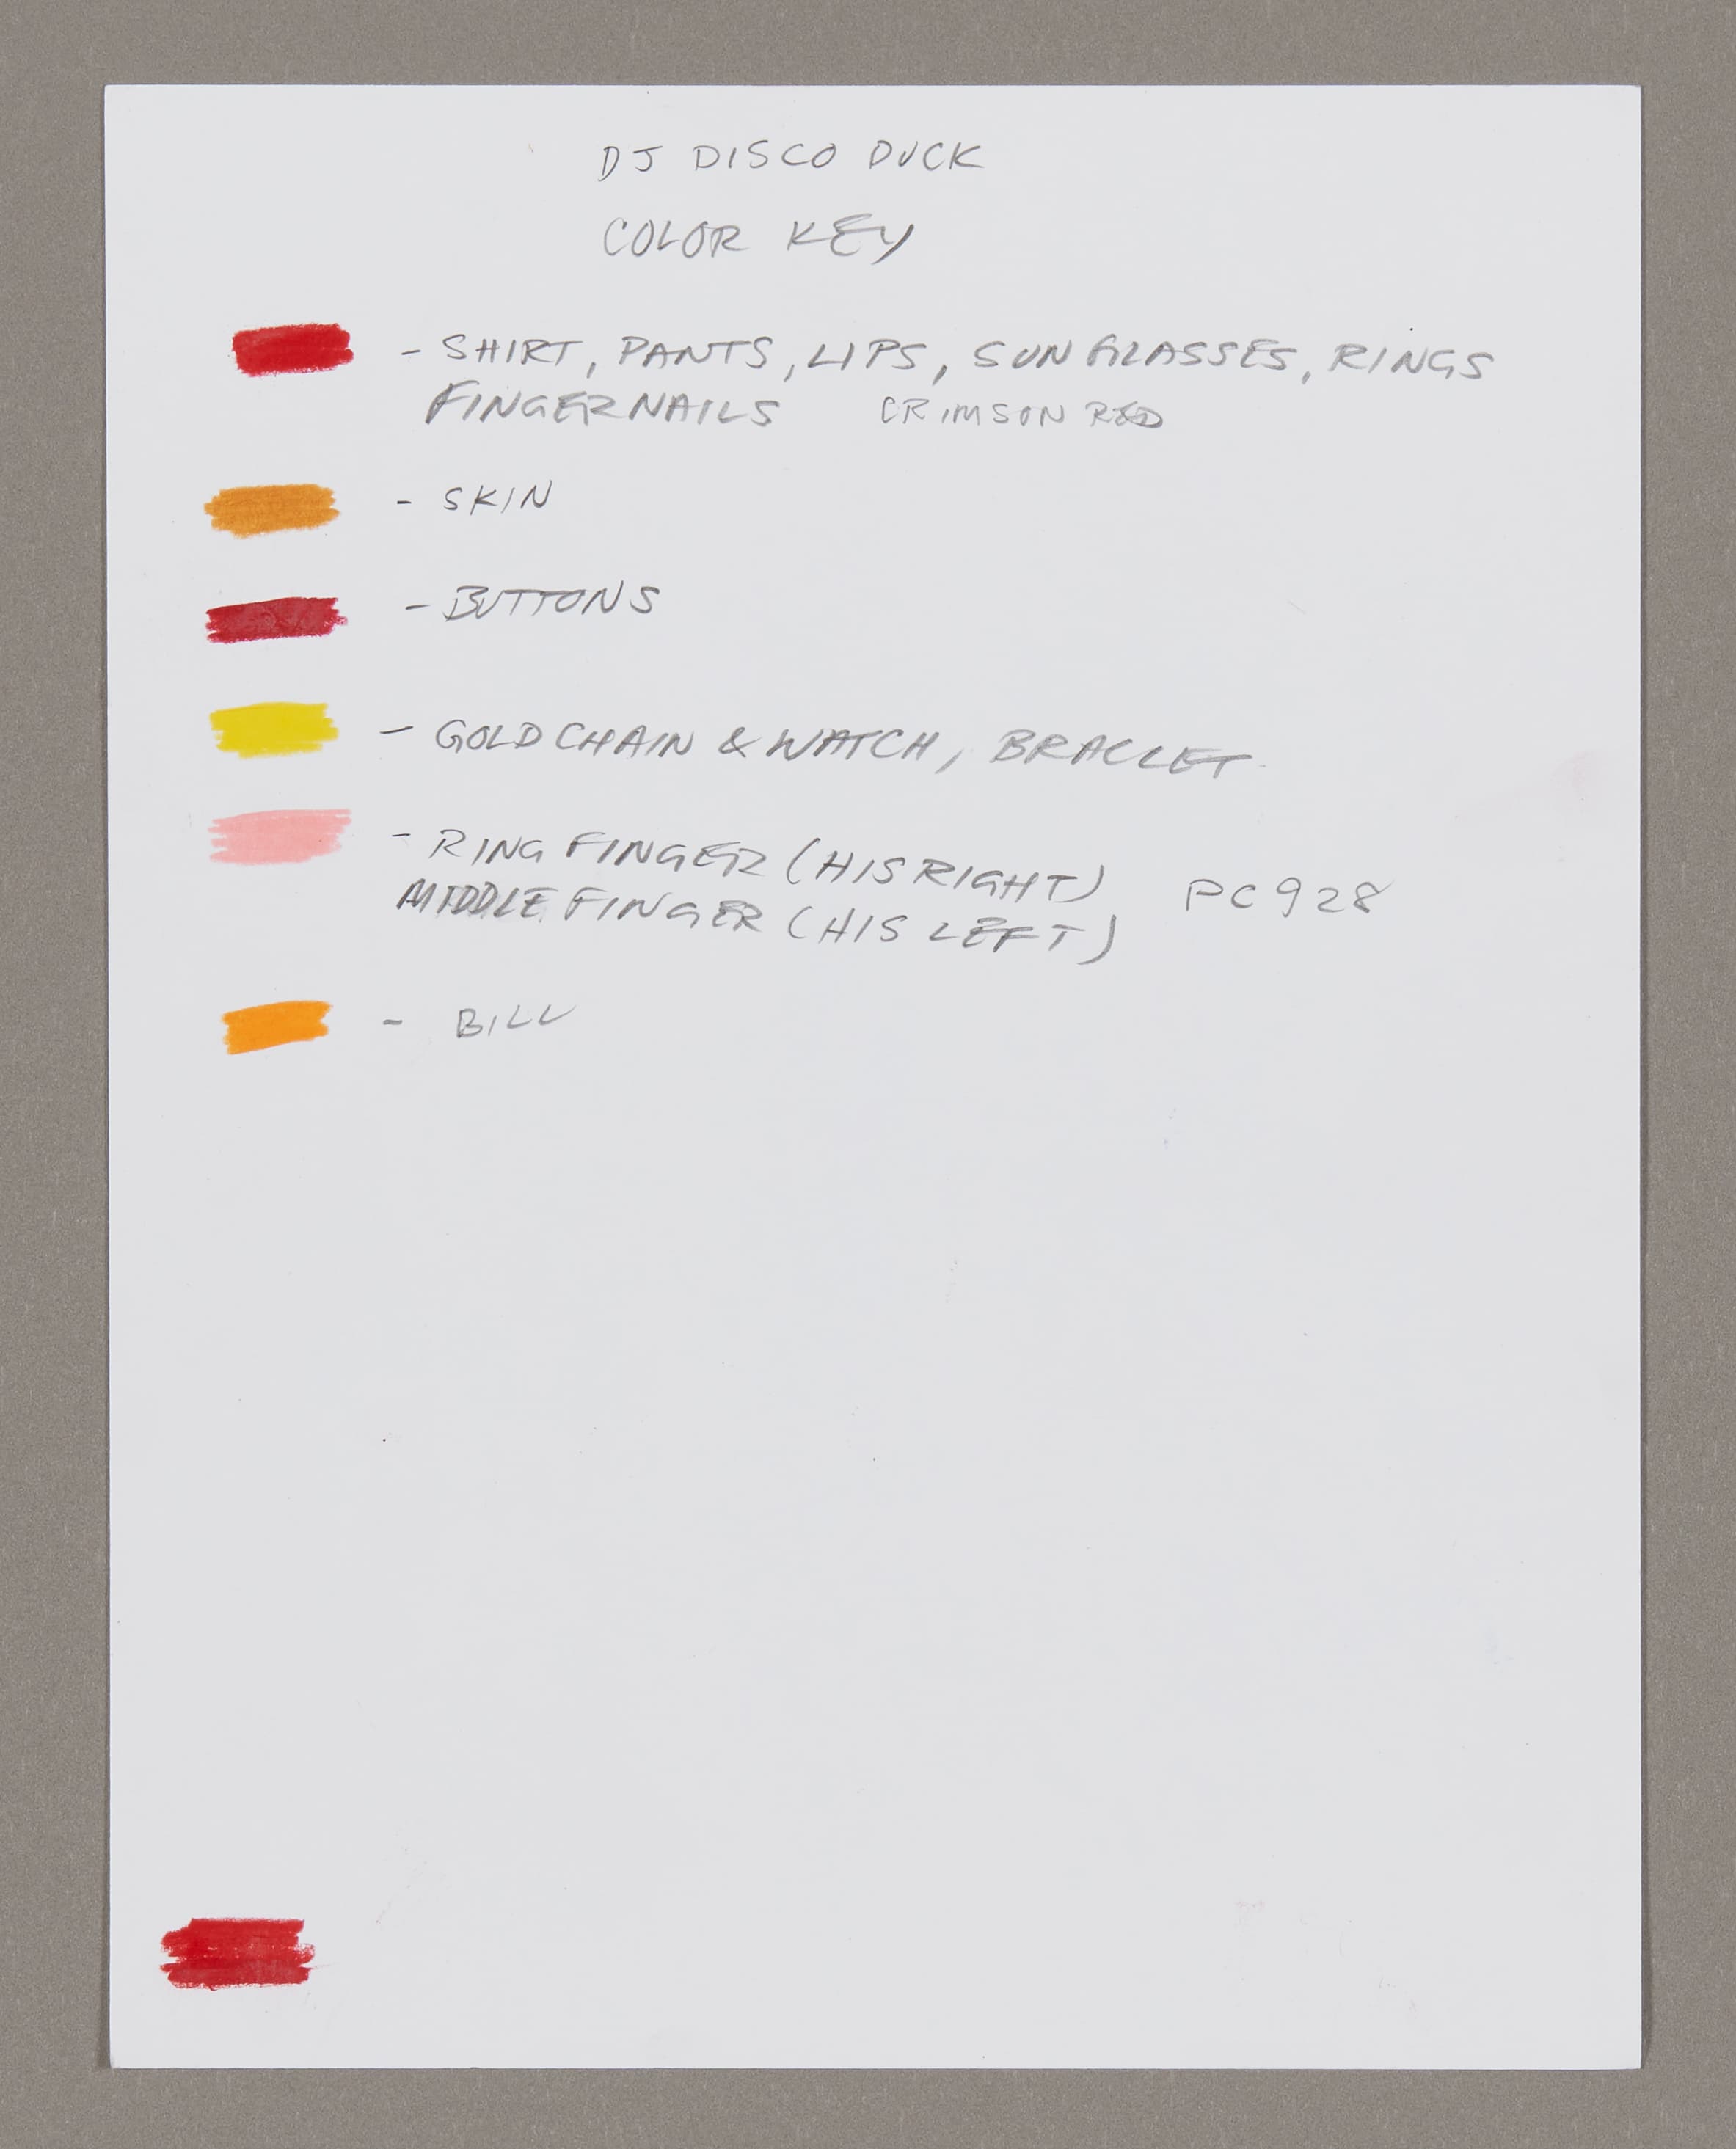 DJ DISCO DUCK
COLOR KEY
- SHIRT, PANTS, LIPS, SUNGLASSES, RINGS
FINGERNAILS CRIMSON RED
- SKIN
- BUTTONS
- GOLD CHAIN & WATCH, BRACLET
- RING FINGER (HIS RIGHT)
MIDDLE FINGER (HIS LEFT) PC928
- BILL